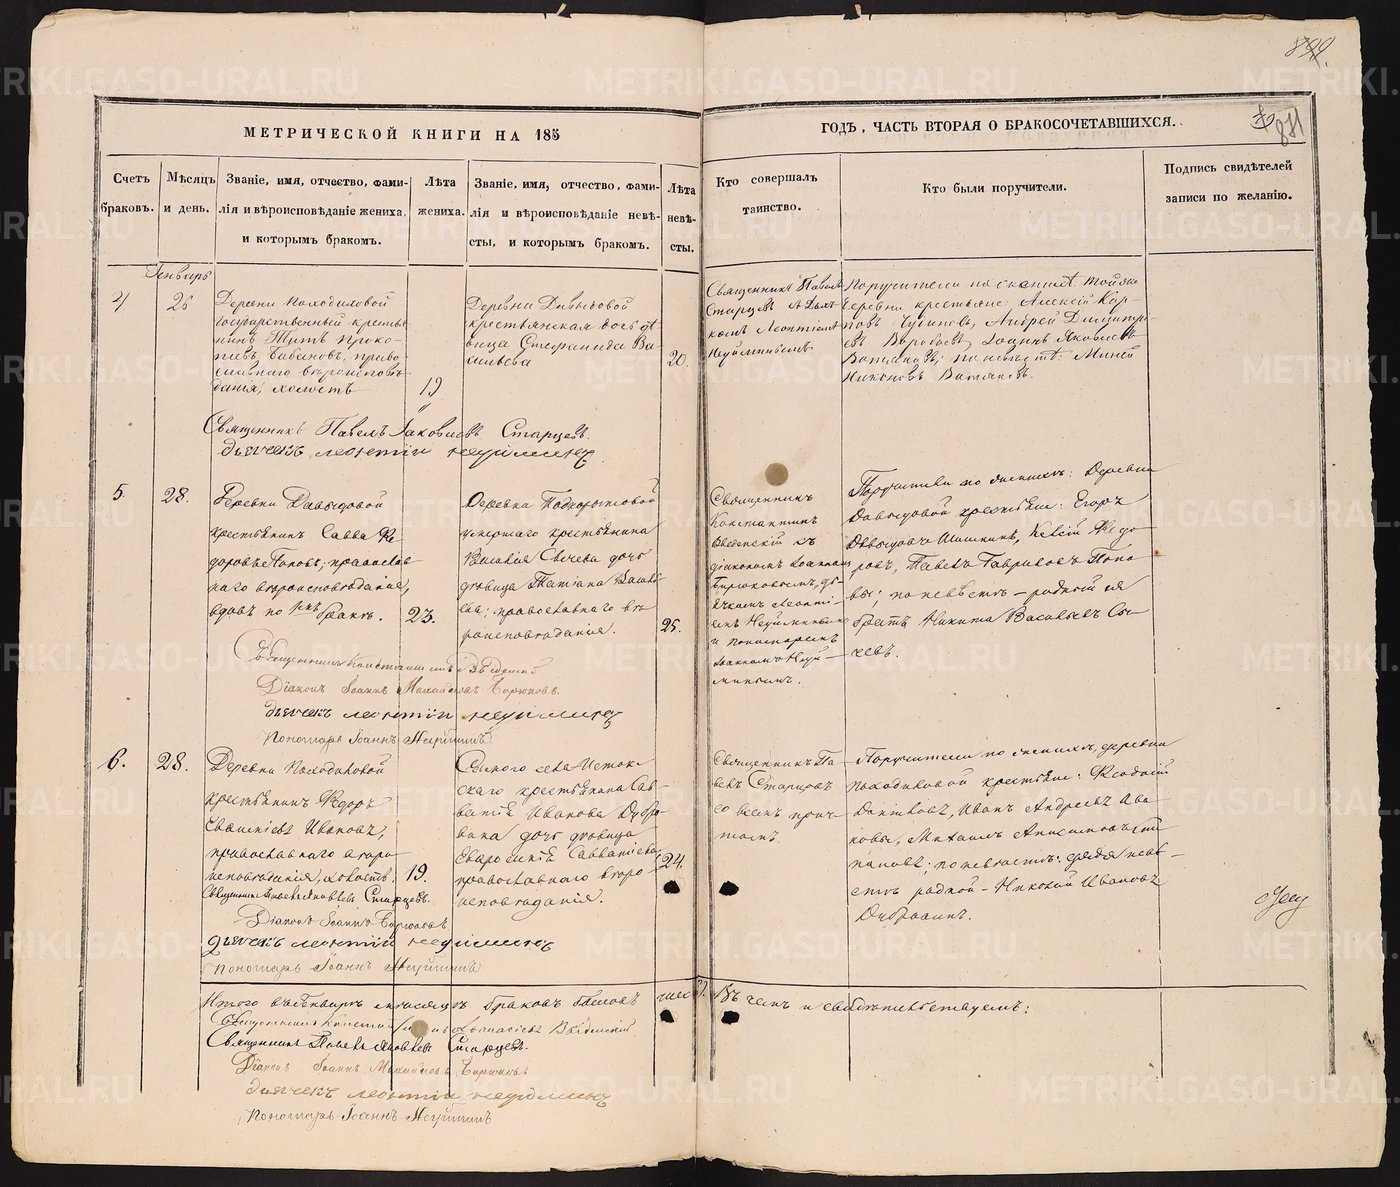 МЕТРИЧЕСКОЙ КНИГИ НА 185
ГОДЪ, ЧАСТЬ ВТОРАЯ О БРАКОСОЧЕТАВШИХСЯ.
Счетъ браковъ.
Мѣсяцъ и день.
Званіе, имя, отчество, фами-
лія и вѣроисповѣданіе жениха,
и которымъ бракомъ.
Лѣта
жениха.
Званіе, имя, отчество, фами-
лія и вѣроисповѣданіе невѣ-
сты, и которымъ бракомъ.
Лѣта
невѣ-
сты.
Кто совершалъ
таинство.
Кто были поручители.
Подпись свидѣтелей
записи по желанію.
Генварь
4
26
Деревни Походиловой
государственный крестья-
нинъ Титъ Проко-
піевъ Бабановъ, право-
славнаго вѣроисповѣ-
данія, холостъ
19
Деревни Давыдовой
крестьянская дочь дѣ-
вица Стефанида Ва-
сильева
20.
Священникъ Павелъ
Старцевъ съ Дьяч-
комъ Леонтіемъ
Неуйминымъ
Поручители по женихѣ: той же
деревни крестьяне: Алексій Кар-
повъ, Андрей Димитрі-
евъ Воробьевъ, Іоаннъ Яковлевъ
по невѣстѣ: Миней
Никоновъ
Священникъ Павелъ Іаковлевъ Старцевъ.
дьячекъ леонтій неуйминъ
5
28.
Деревни Давыдовой
крестьянинъ Савва Фе-
доровъ Поповъ, православ
наго вѣроисповѣданія,
вдовъ по 1мъ бракѣ.
23.
Деревни Подкорытовой
умершаго крестьянина
Василія Сычева дочь
дѣвица Татіана Василь-
ева; православнаго вѣ-
роисповѣданія.
25.
Священникъ
Константинъ
Введенскій съ
діакономъ Іоанномъ
Бирюковымъ, дь-
ячкомъ Леонті-
емъ Неуйминымъ
и пономаремъ
Іоанномъ Неуй-
минымъ.
Поручители по женихѣ: Деревни
Давыдовой крестьяне: Егоръ
Давыдовъ Шишкинъ, Федо-
ровъ, Павелъ Гавриловъ Попо-
вы; по невѣстѣ – родной ея
братъ Никита Васильевъ Сы-
чевъ.
Священникъ Константинъ Введенскій
Діаконъ Іоаннъ Михайловъ Бирюковъ.
дьячекъ леонтій неуйминъ
Пономарь Іоаннъ Неуйминъ
6.
28.
Деревни Походиловой
крестьянинъ Ѳедоръ
Ивановъ,
православнаго вѣро-
исповѣданія, холостъ.
19.
села Исток-
скаго крестьянина Сав-
ватія Иванова Дубро-
вина дочь дѣвица
Савватіева,
православнаго вѣро-
исповѣданія.
24.
Священникъ Па-
велъ Старцовъ
со всемъ прич-
томъ.
Поручители по женихѣ, деревни
Походиловой крестьяне: Ѳеодосій
Иванъ Андреевъ Ива-
новы, Михаилъ Анисимовъ
по невѣстѣ: дядя невѣ-
стѣ родной – Николай Ивановъ
Дубровинъ.
Священникъ Павелъ Яковлевъ Старцевъ.
Діаконъ Іоаннъ Бирюковъ
дьячекъ леонтій неуйминъ
пономарь Іоаннъ Неуйминъ
Итого въ Генварѣ мѣсяцѣ браковъ было шесть. Въ чемъ и свидѣтельствуемъ:
Священникъ Константинъ Аѳанасіевъ Введенскій
Священникъ Павелъ Яковлевъ Старцевъ.
Діаконъ Іоаннъ Михайловъ Бирюковъ
дьячекъ леонтій неуйминъ
Пономарь Іоаннъ Неуйминъ
METRIKI.GASO-URAL.RU